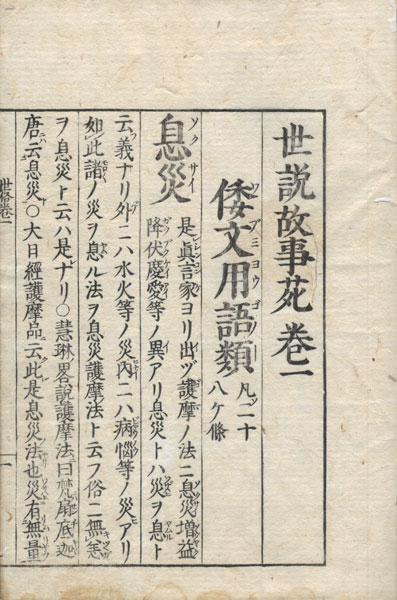 世説故事苑卷一
倭文用語類 凡二十八ケ條
息災 是眞言家ヨリ出ヅ護摩ノ法ニ息災増益
降伏慶愛等ノ異アリ息災トハ災ヲ息ト
云義ナリ外ニハ水火等ノ災内ニハ病惱等ノ災アリ
如此諸ノ災ヲ息ル法ヲ息災護摩法ト云フ俗ニ無恙
ヲ息災ト云ハ是ナリ○慧琳畧説護摩法曰梵扇底迦
唐云息災○大日經護摩品云此是息災法也災有無量
世俗卷一
一